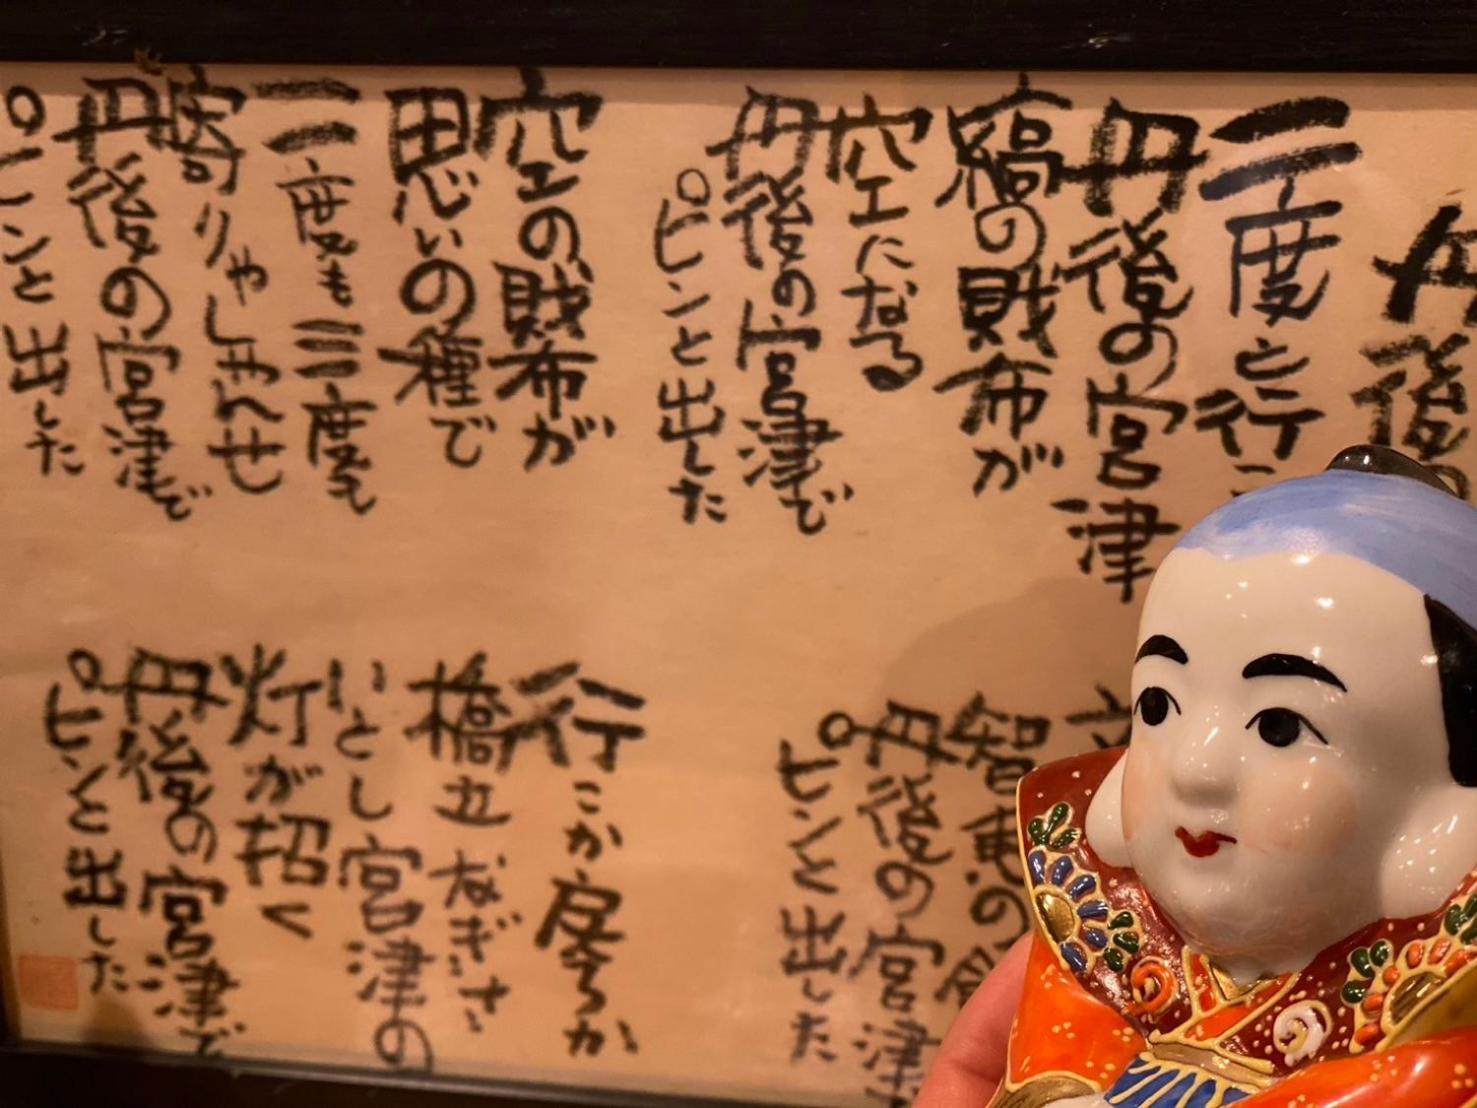 丹後
二度と行こ
丹後の宮津
縞の財布が
空になる
丹後の宮津で
ピンと出した
空の財布が
思いの種で
二度も三度も
寄りゃしゃんせ
丹後の宮津で
ピンと出した
智恵の
丹後の宮津
ピンと出した
行こか戻ろか
橋立なぎさ
いとし宮津の
灯が招く
丹後の宮津で
ピンと出した